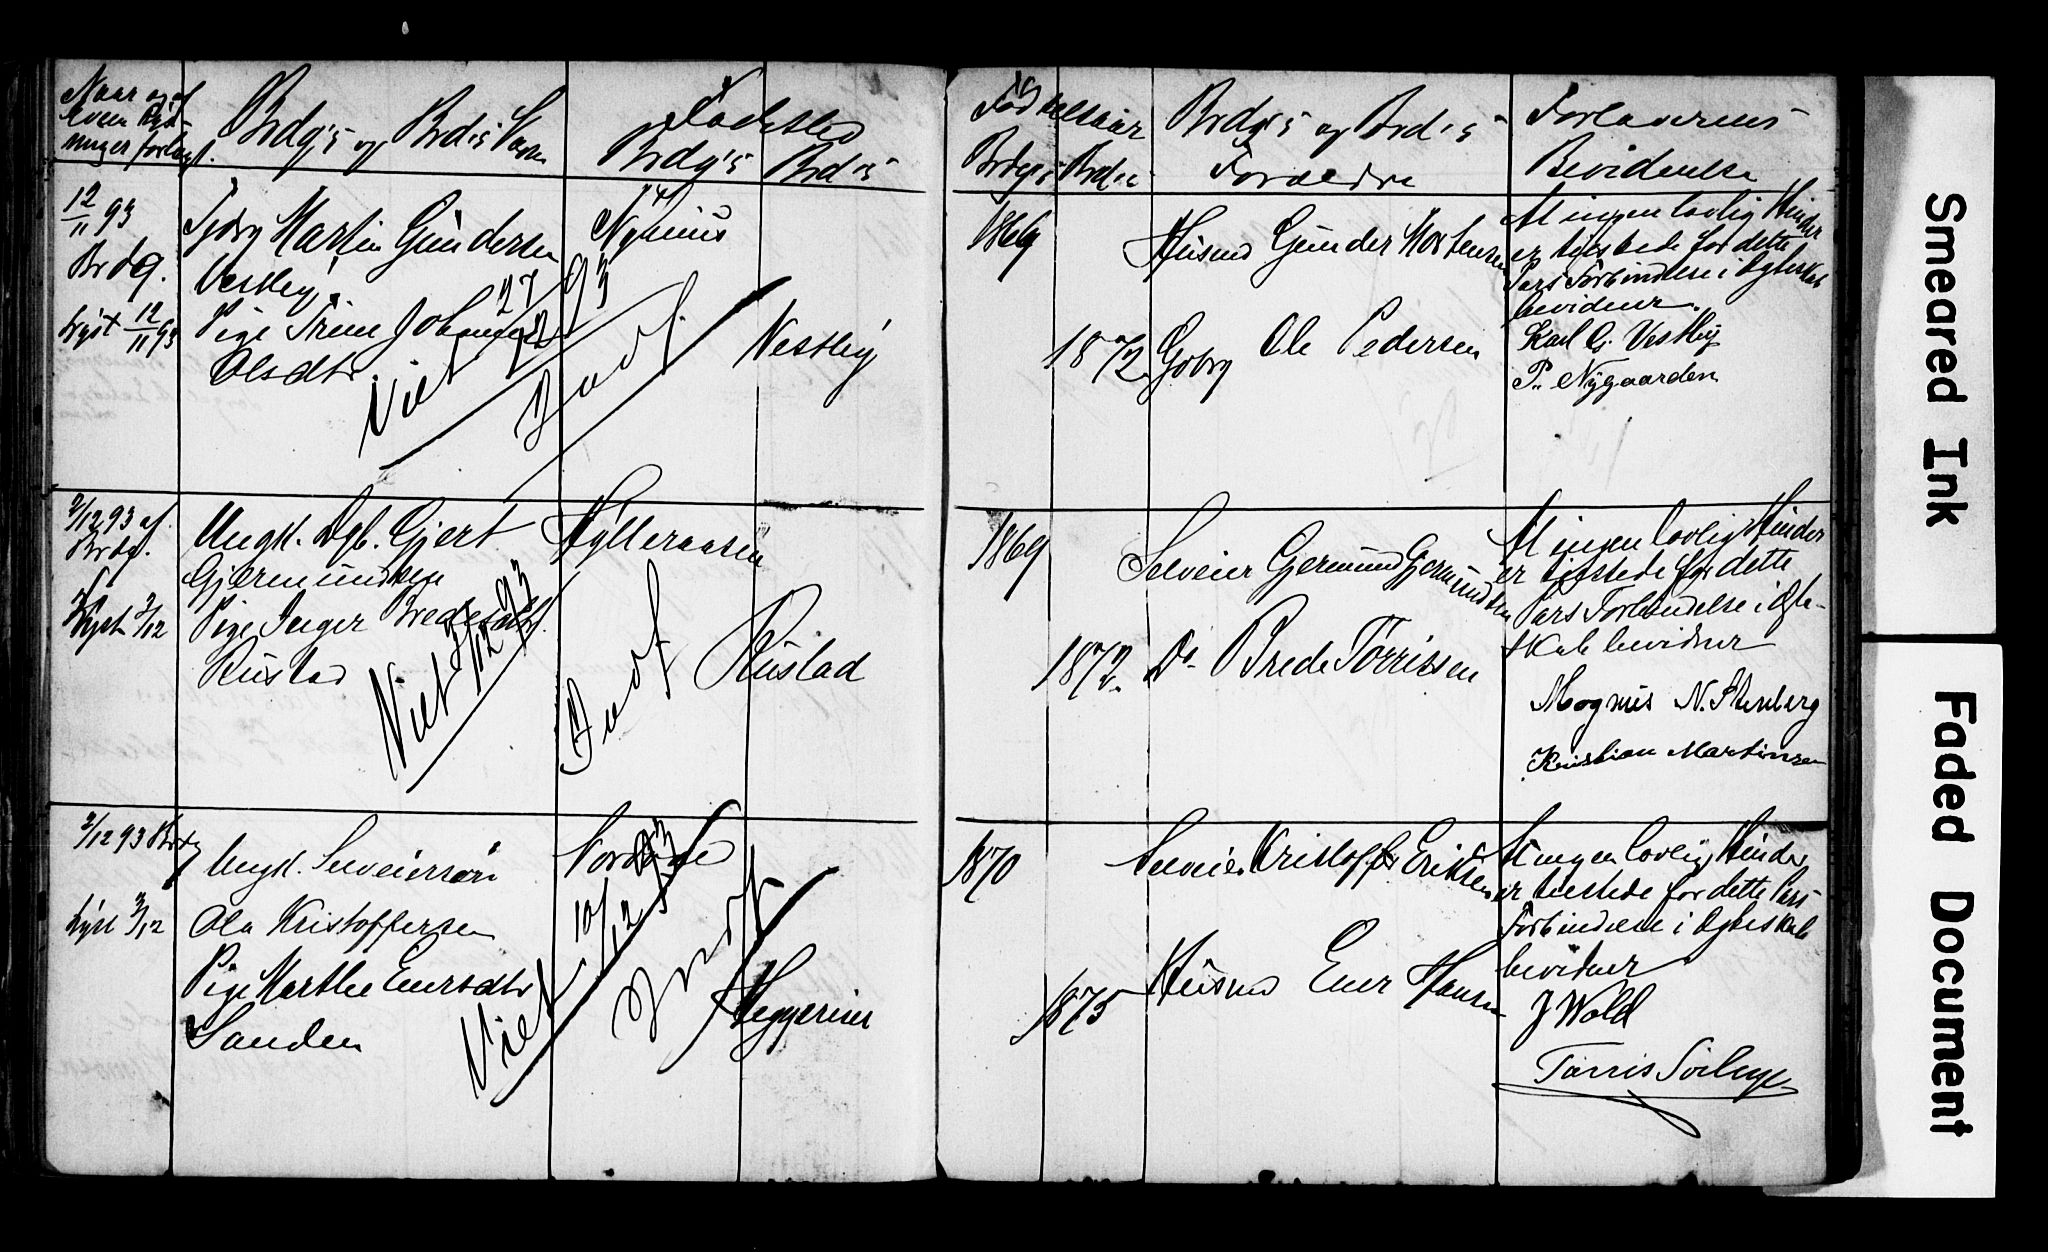 Naar og af
hvem Lys-
ninger forlagt.
Brdg's og Brd's Navn
Fødested
Brdg's
Brd's
Fødselsaar
Brdg's
Brd's
Brdg's og Brd's
Forældre
Forlovernes
Bevidnelse
12/11 93
Brdg.
Lyst 12/11 93
Gbrg Martin Gundersen
Vestby
Pige Trine Johanne
Olsdtr.
Viet 93
Vestby
1869
1872
Husmd Gunder Mortensen
Gbrg Ole Pedersen
At ingen lovlig Hinder
er tilstede for dette
Pars Forbindelse i Ægteskab
bevidner
Karl G. Vestby
P. Nygaarden
3/12 93 af
Brdg.
Lyst 3/12
Ungk. Dgb. Gjert
Gjermundsen
Pige Inger Bredesdtr.
Rustad
Viet 12 93
Hylleraasen
Rustad
1869
1872
Selveier Gjermund Gjermundsen
Do Brede Torrissen
At ingen lovlig Hinder
er tilstede for dette
Pars Forbindelse i Ægte-
skab bevidner
Magnus N. Stenberg
Kristian Martinsen
3/12 93 Brdg
Lyst 3/12
Ungk. Selveiersøn
Ola Kristoffersen
Pige Marthe Enersdtr
Sanden
Viet 10/12 93
Heggerines
1870
1875
Selveier Kristoffer Eriksen
Husmd Ener Hansen
At ingen lovlig Hinder
er tilstede for dette Pars
Forbindelse i Ægteskab
bevidner
J Wold
Tarris
Smeared Ink
Faded Document